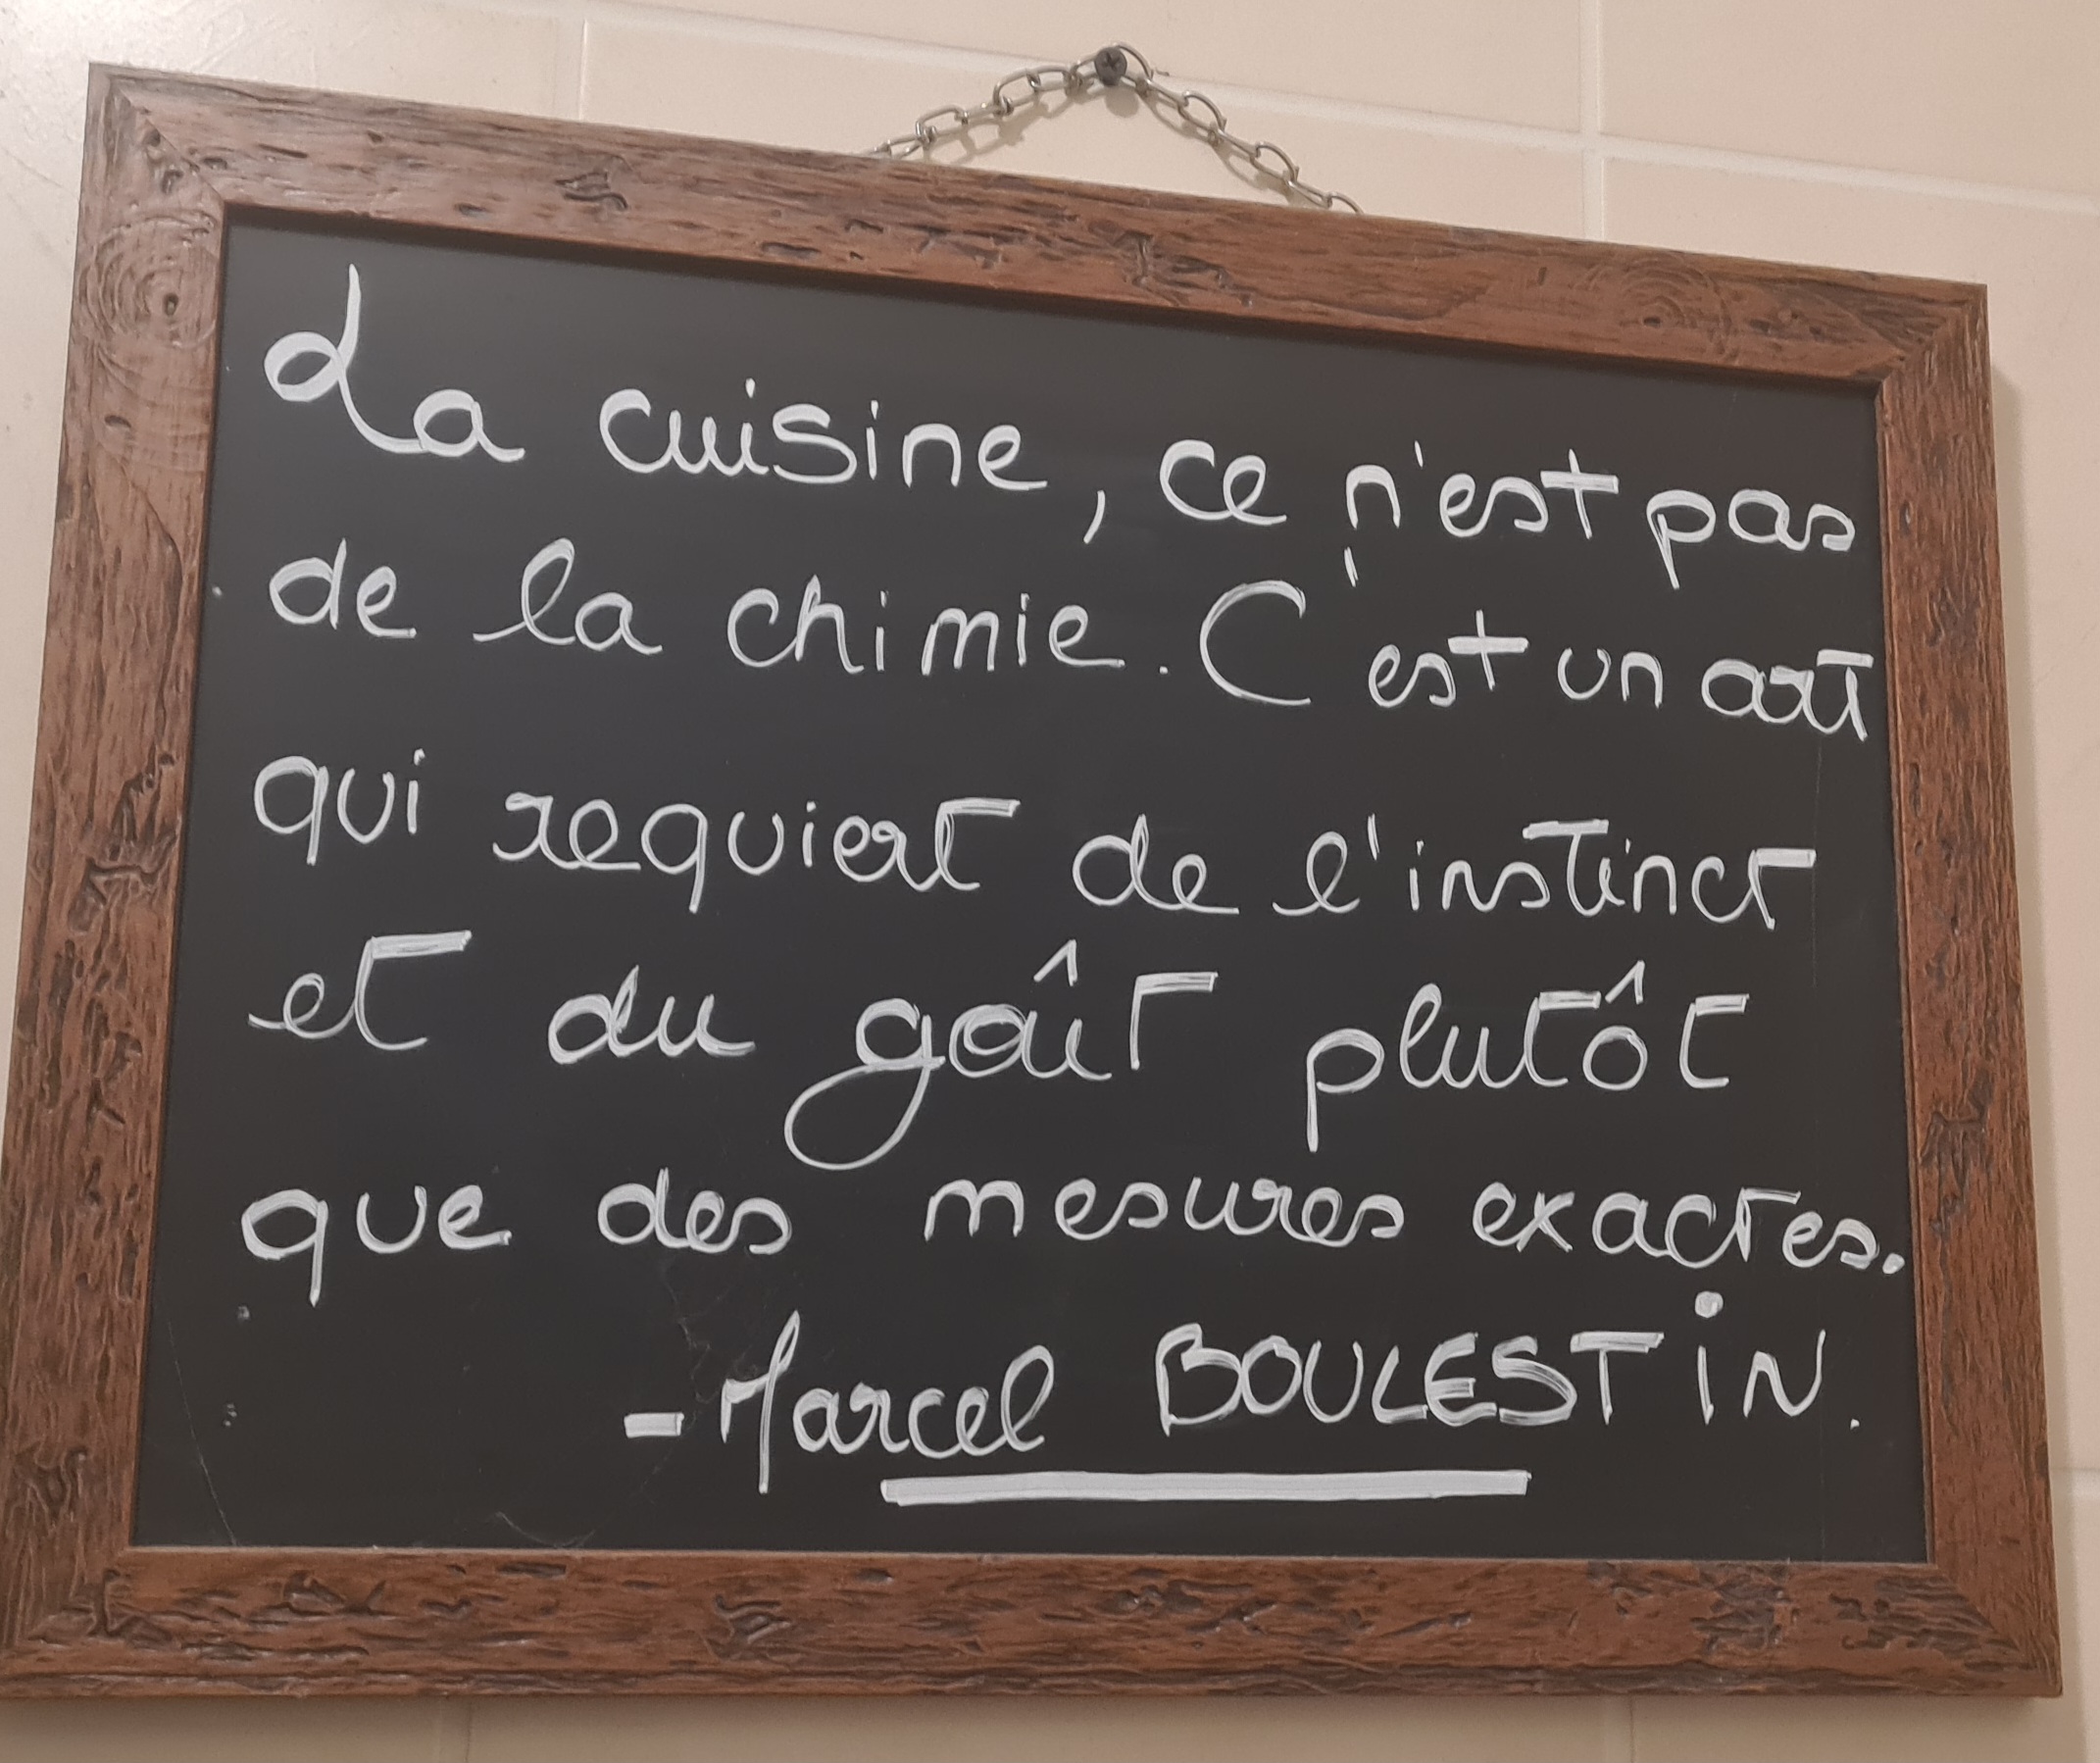 La cuisine, ce n'est pas
de la chimie. C'est un art
qui requiert de l'instinct
et du goût plutôt
que des mesures exactes.
- Marcel BOULESTiN.